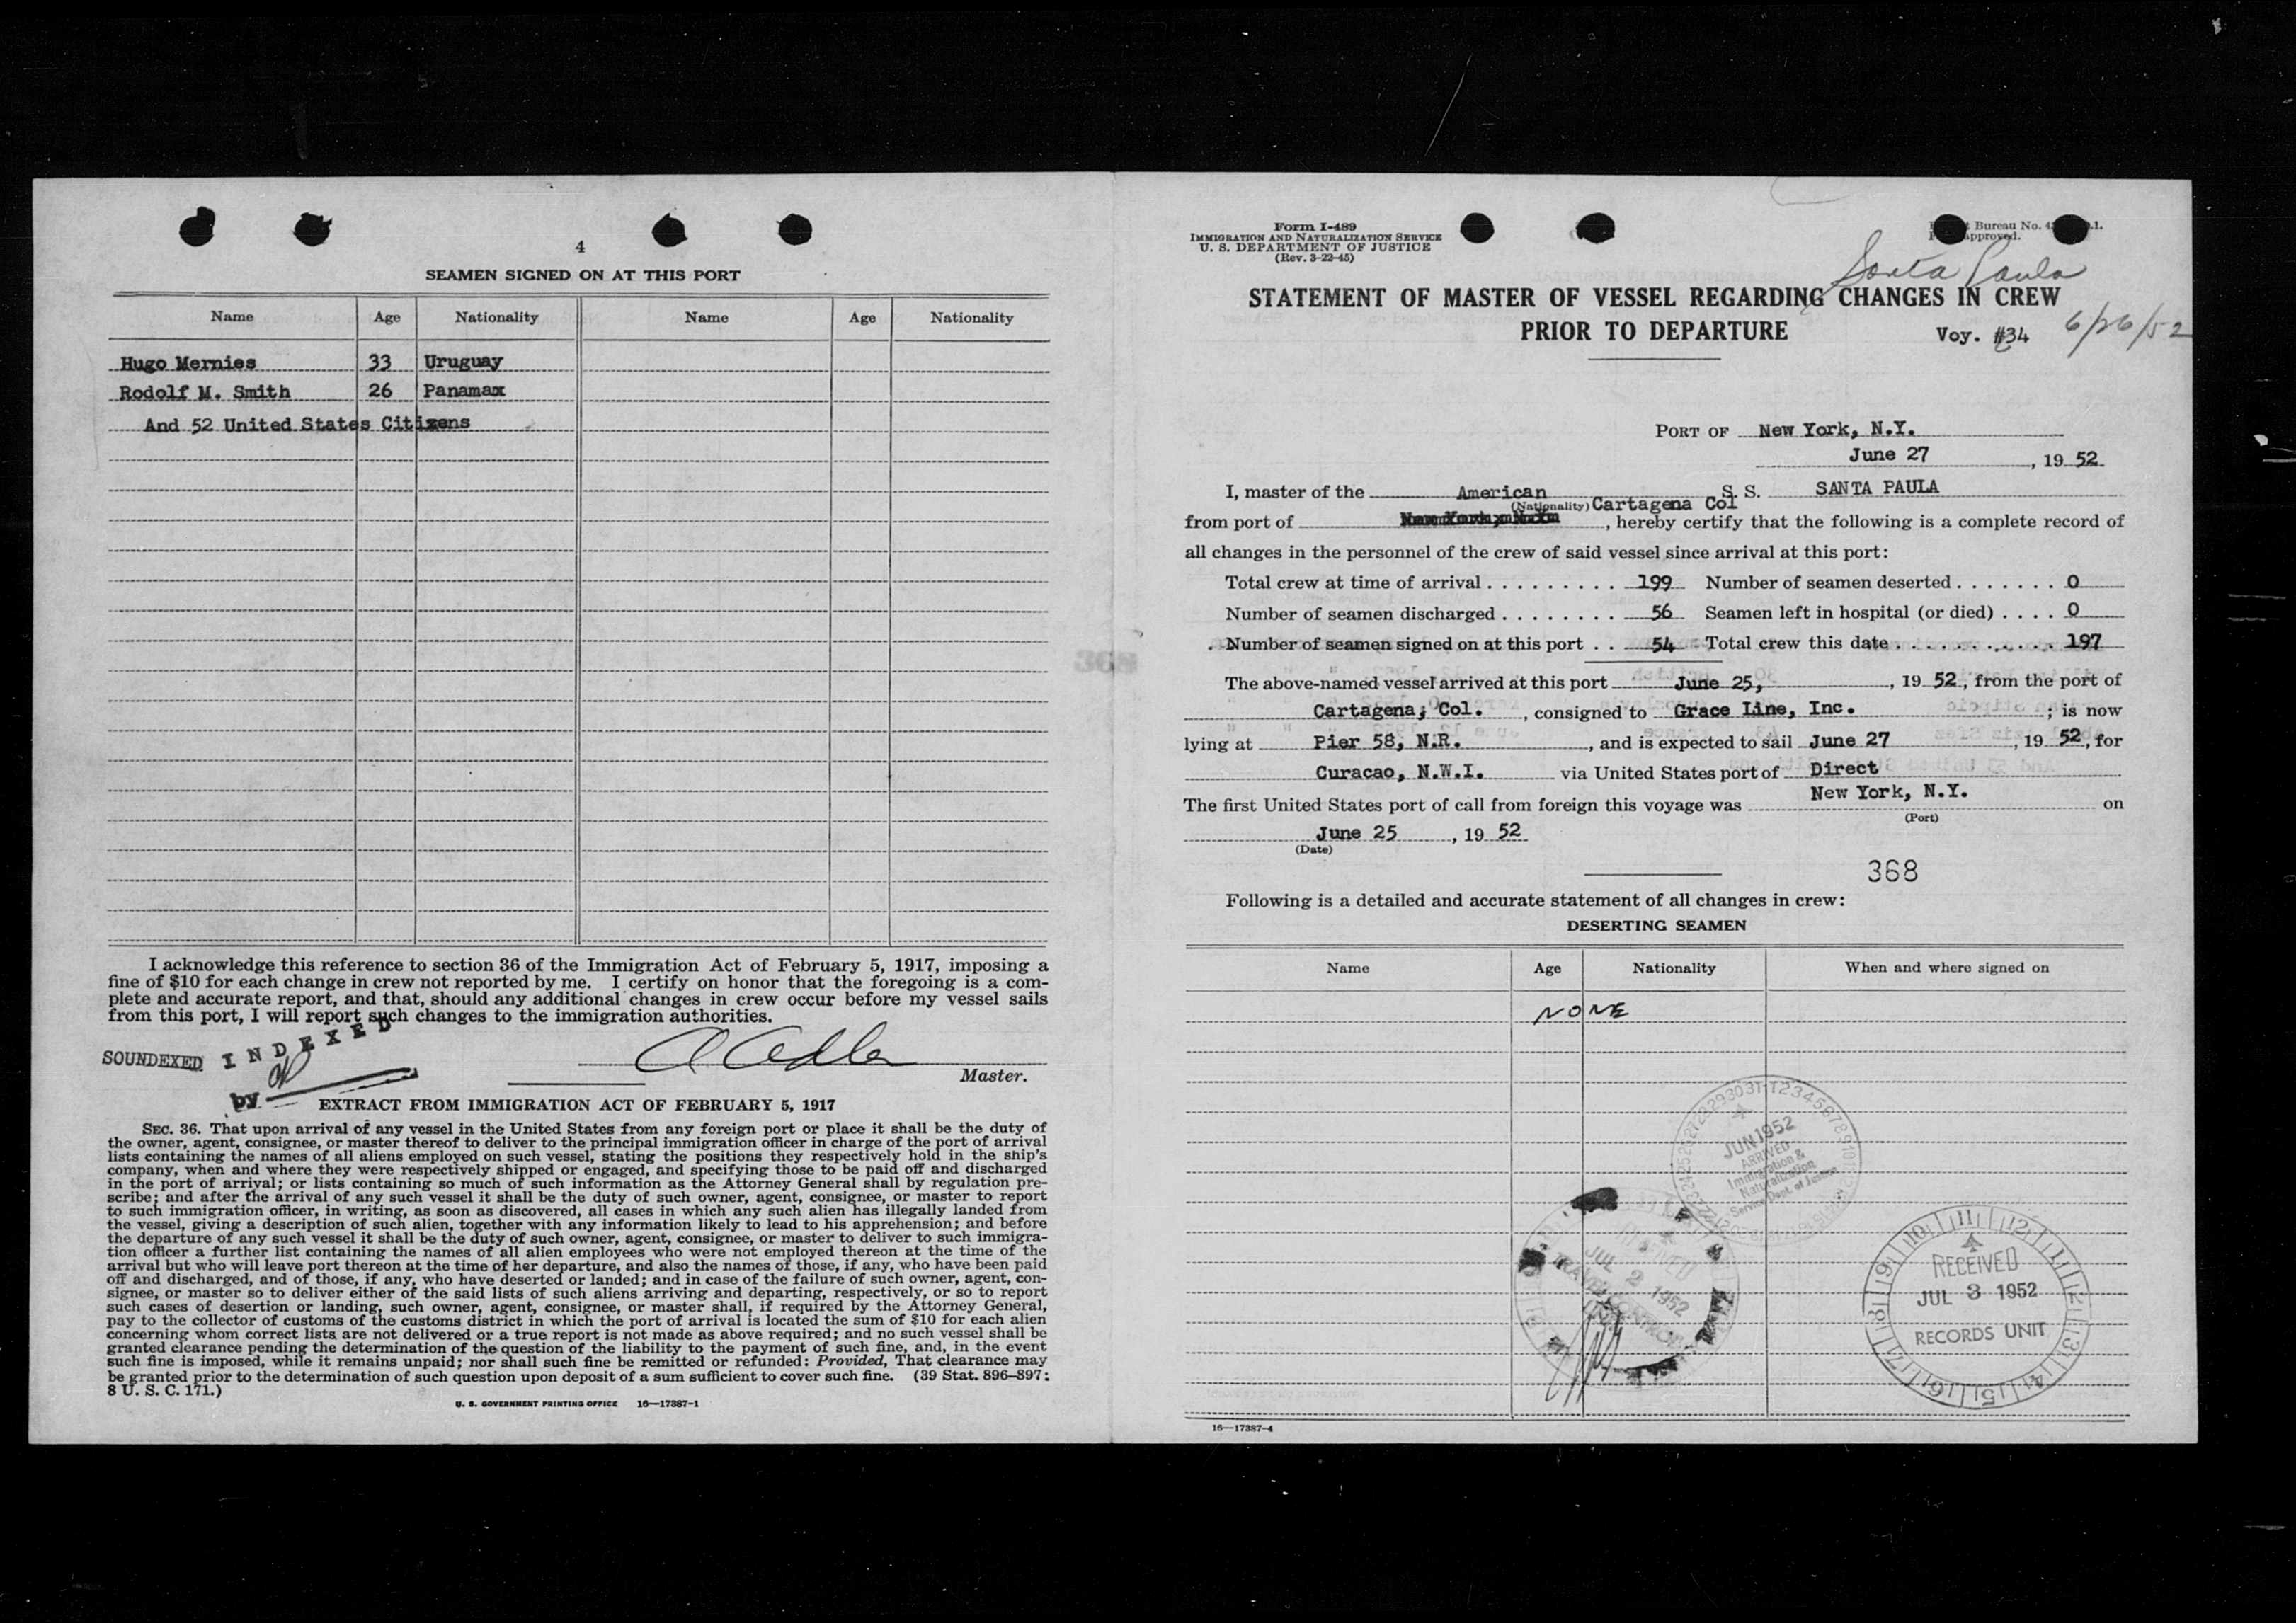 4
SEAMEN SIGNED ON AT THIS PORT
Name Age Nationality Name Age Nationality
Hugo Mernies 33 Uruguay
Rodolf M. Smith 26 Panama
And 52 United States Citizens
I acknowledge this reference to section 36 of the Immigration Act of February 5, 1917, imposing a
fine of $10 for each change in crew not reported by me. I certify on honor that the foregoing is a com-
plete and accurate report, and that, should any additional changes in crew occur before my vessel sails
from this port, I will report such changes to the immigration authorities.
SOUNDEXED INDEXED
by
A Adler
Master.
EXTRACT FROM IMMIGRATION ACT OF FEBRUARY 5, 1917
SEC. 36. That upon arrival of any vessel in the United States from any foreign port or place it shall be the duty of
the owner, agent, consignee, or master thereof to deliver to the principal immigration officer in charge of the port of arrival
lists containing the names of all aliens employed on such vessel, stating the positions they respectively hold in the ship's
company, when and where they were respectively shipped or engaged, and specifying those to be paid off and discharged
in the port of arrival; or lists containing so much of such information as the Attorney General shall by regulation pre-
scribe; and after the arrival of any such vessel it shall be the duty of such owner, agent, consignee, or master to report
to such immigration officer, in writing, as soon as discovered, all cases in which any such alien has illegally landed from
the vessel, giving a description of such alien, together with any information likely to lead to his apprehension; and before
the departure of any such vessel it shall be the duty of such owner, agent, consignee, or master to deliver to such immigra-
tion officer a further list containing the names of all alien employees who were not employed thereon at the time of the
arrival but who will leave port thereon at the time of her departure, and also the names of those, if any, who have been paid
off and discharged, and of those, if any, who have deserted or landed; and in case of the failure of such owner, agent, con-
signee, or master so to deliver either of the said lists of such aliens arriving and departing, respectively, or so to report
such cases of desertion or landing, such owner, agent, consignee, or master shall, if required by the Attorney General,
pay to the collector of customs of the customs district in which the port of arrival is located the sum of $10 for each alien
concerning whom correct lists are not delivered or a true report is not made as above required; and no such vessel shall be
granted clearance pending the determination of the question of the liability to the payment of such fine, and, in the event
such fine is imposed, while it remains unpaid; nor shall such fine be remitted or refunded: Provided, That clearance may
be granted prior to the determination of such question upon deposit of a sum sufficient to cover such fine. (39 Stat. 896–897;
8 U. S. C. 171.)
U. S. GOVERNMENT PRINTING OFFICE 16—17387-1
Form I-489
IMMIGRATION AND NATURALIZATION SERVICE
U. S. DEPARTMENT OF JUSTICE
(Rev. 3-22-45)
Bureau No.
approved.
Santa Paula
STATEMENT OF MASTER OF VESSEL REGARDING CHANGES IN CREW
PRIOR TO DEPARTURE
Voy. #34 6/26/52
PORT OF New York, N.Y.
June 27, 19 52
I, master of the American S. S. SANTA PAULA
(Nationality) Cartagena Col
from port of , hereby certify that the following is a complete record of
all changes in the personnel of the crew of said vessel since arrival at this port:
Total crew at time of arrival . . . . . . . . . 199 Number of seamen deserted . . . . . . . 0
Number of seamen discharged . . . . . . . . 56 Seamen left in hospital (or died) . . . . 0
Number of seamen signed on at this port . . 54 Total crew this date . . . . . . . . . . . . 197
The above-named vessel arrived at this port June 25, , 19 52, from the port of
Cartagena, Col. , consigned to Grace Line, Inc. ; is now
lying at Pier 58, N.R. , and is expected to sail June 27 , 19 52, for
Curacao, N.W.I. via United States port of Direct
The first United States port of call from foreign this voyage was New York, N.Y. on
(Port)
June 25 , 19 52
(Date)
368
Following is a detailed and accurate statement of all changes in crew:
DESERTING SEAMEN
Name Age Nationality When and where signed on
NONE
JUN 1952
ARRIVED
Immigration &
Naturalization
Service Dept. of Justice
RECEIVED
JUL 2 1952
RECEIVED
JUL 3 1952
RECORDS UNIT
16—17387-4